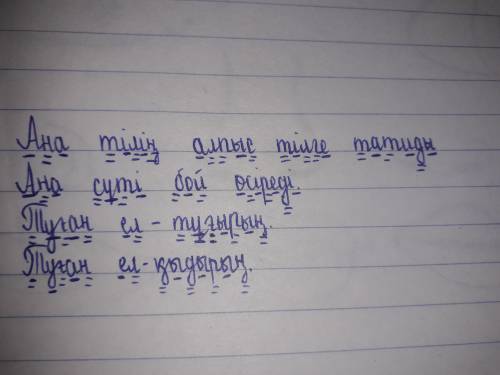 Ана тілің алпыс тілге татиды
Ана сүті бой өсіреді.
Туған ел - тұғырың.
Туған ел - қыдырың.